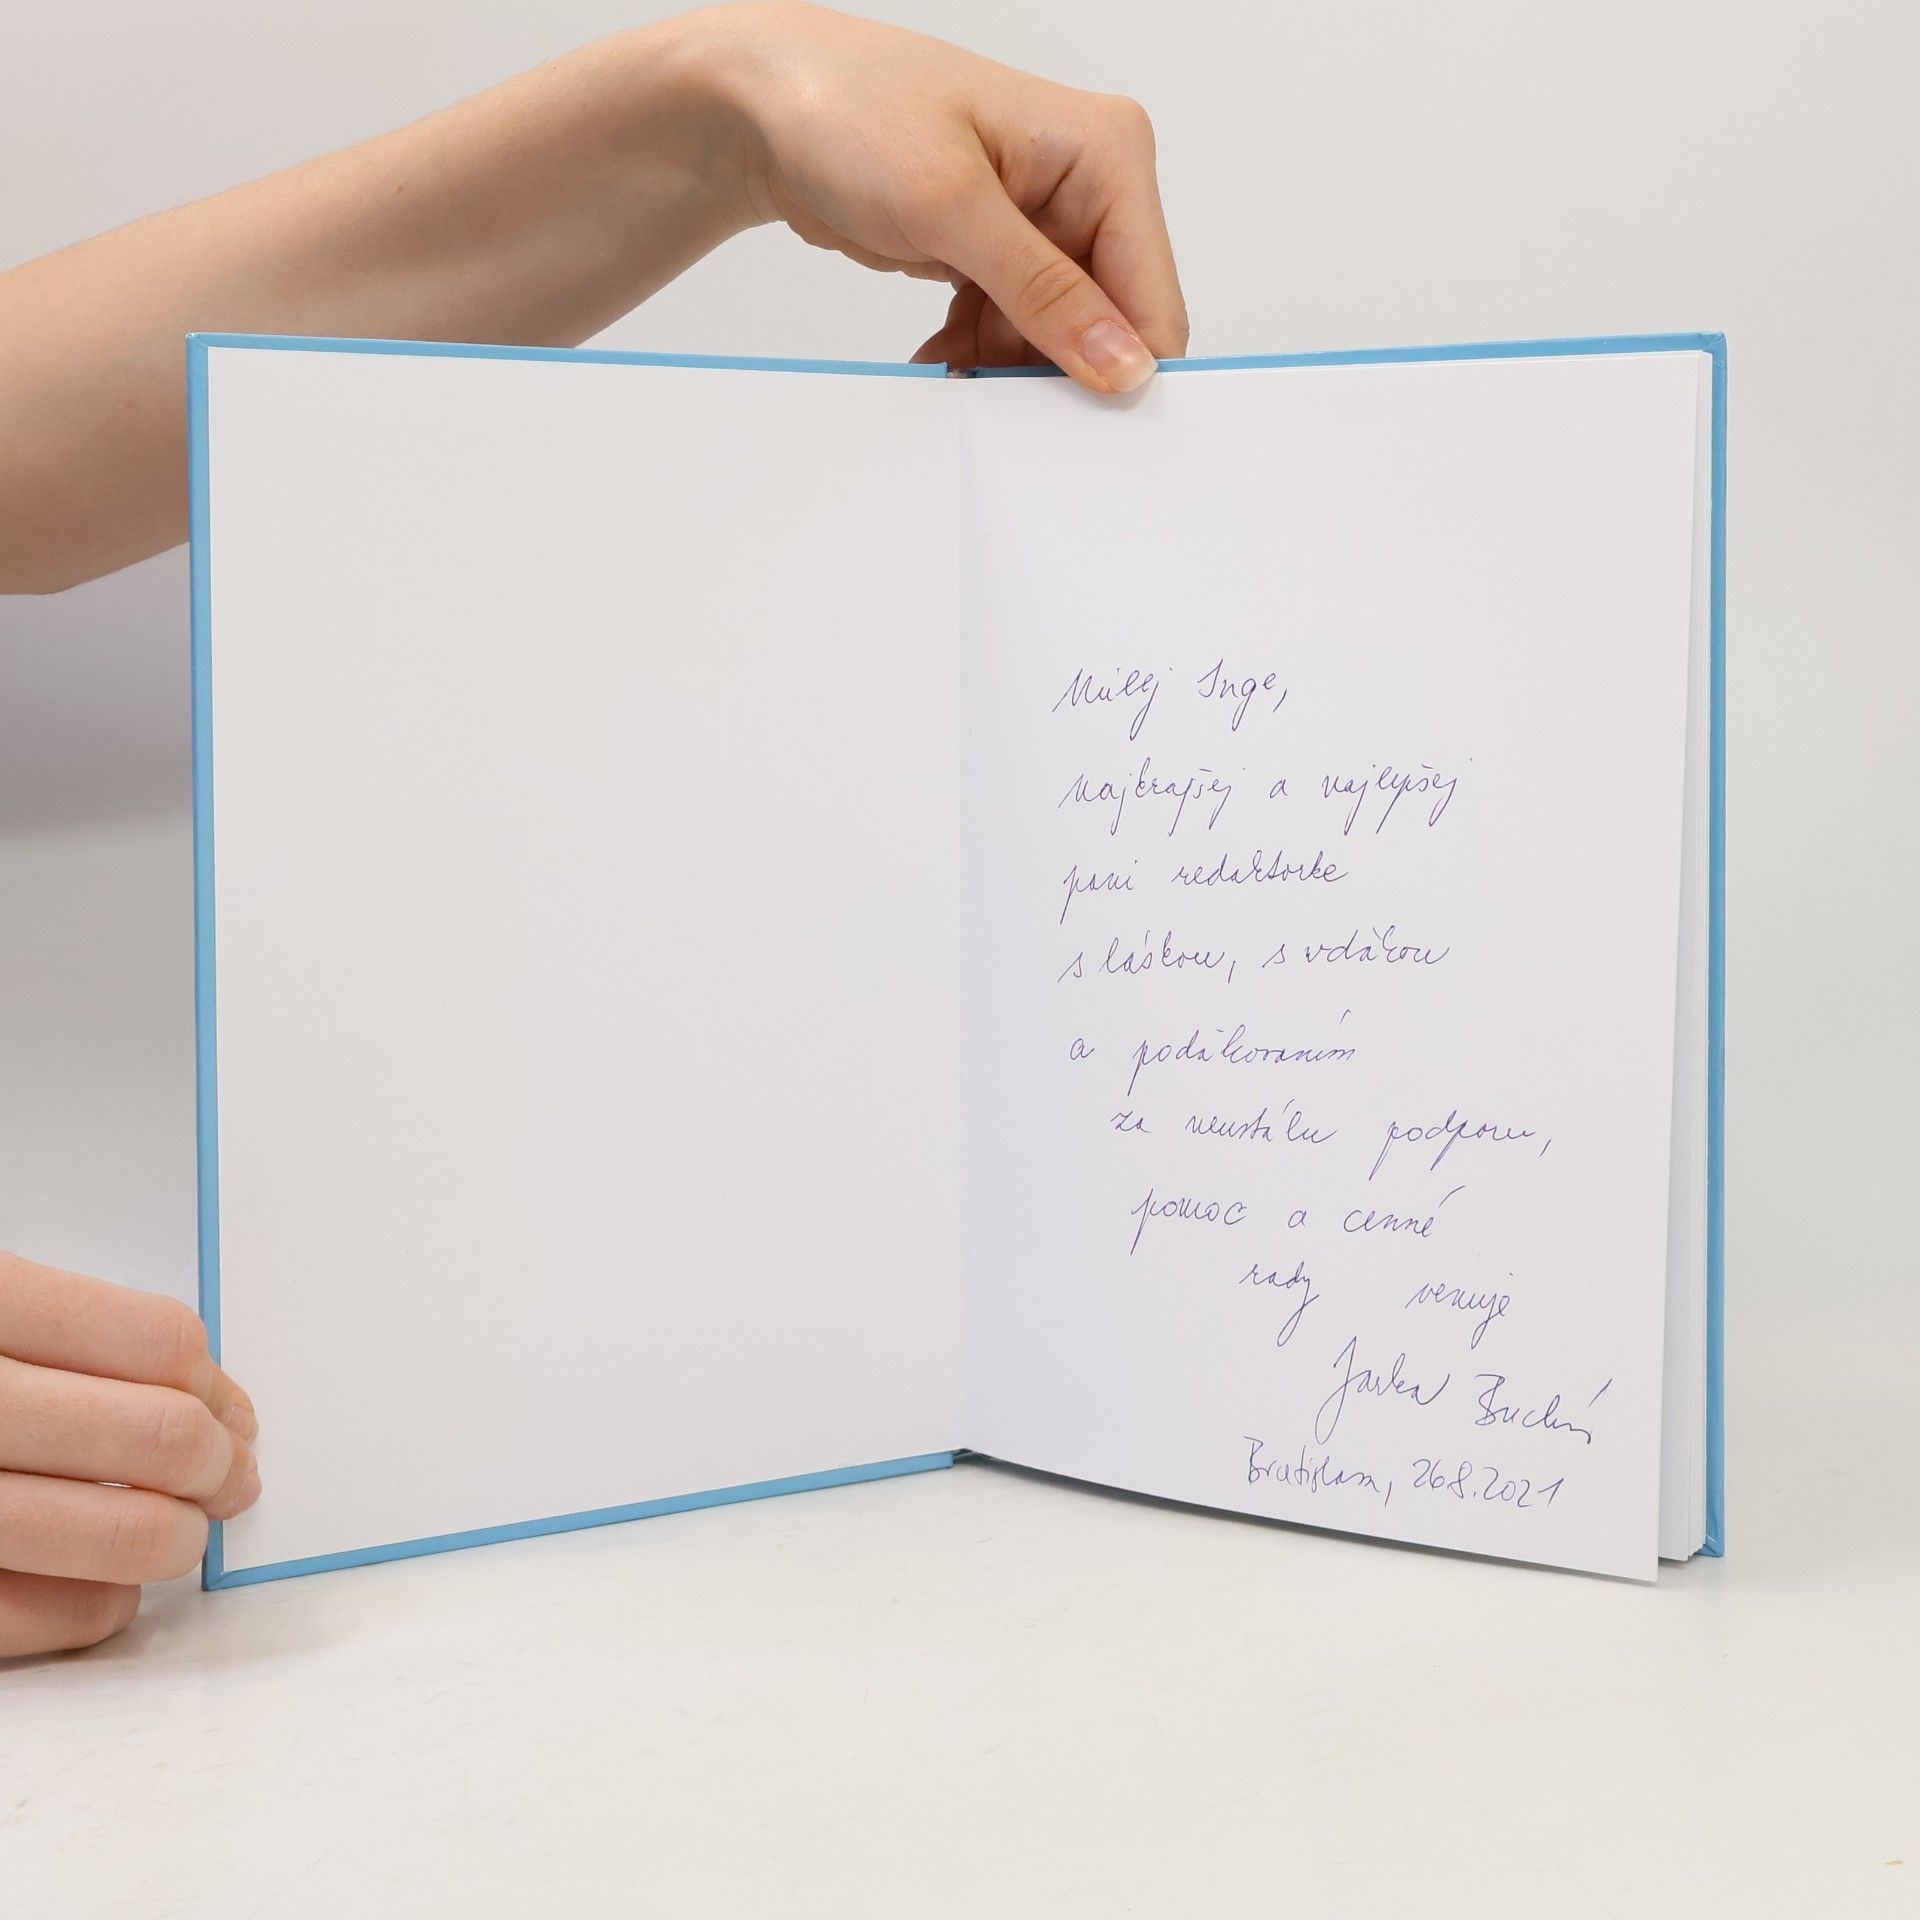 Milej Inge,
najkrajšej a najlepšej
pani redaktorke
s láskou, s vďakou
a poďakovaním
za neustálu podporu,
pomoc a cenné
rady venuje
Jarka
Bratislava, 26.8.2021